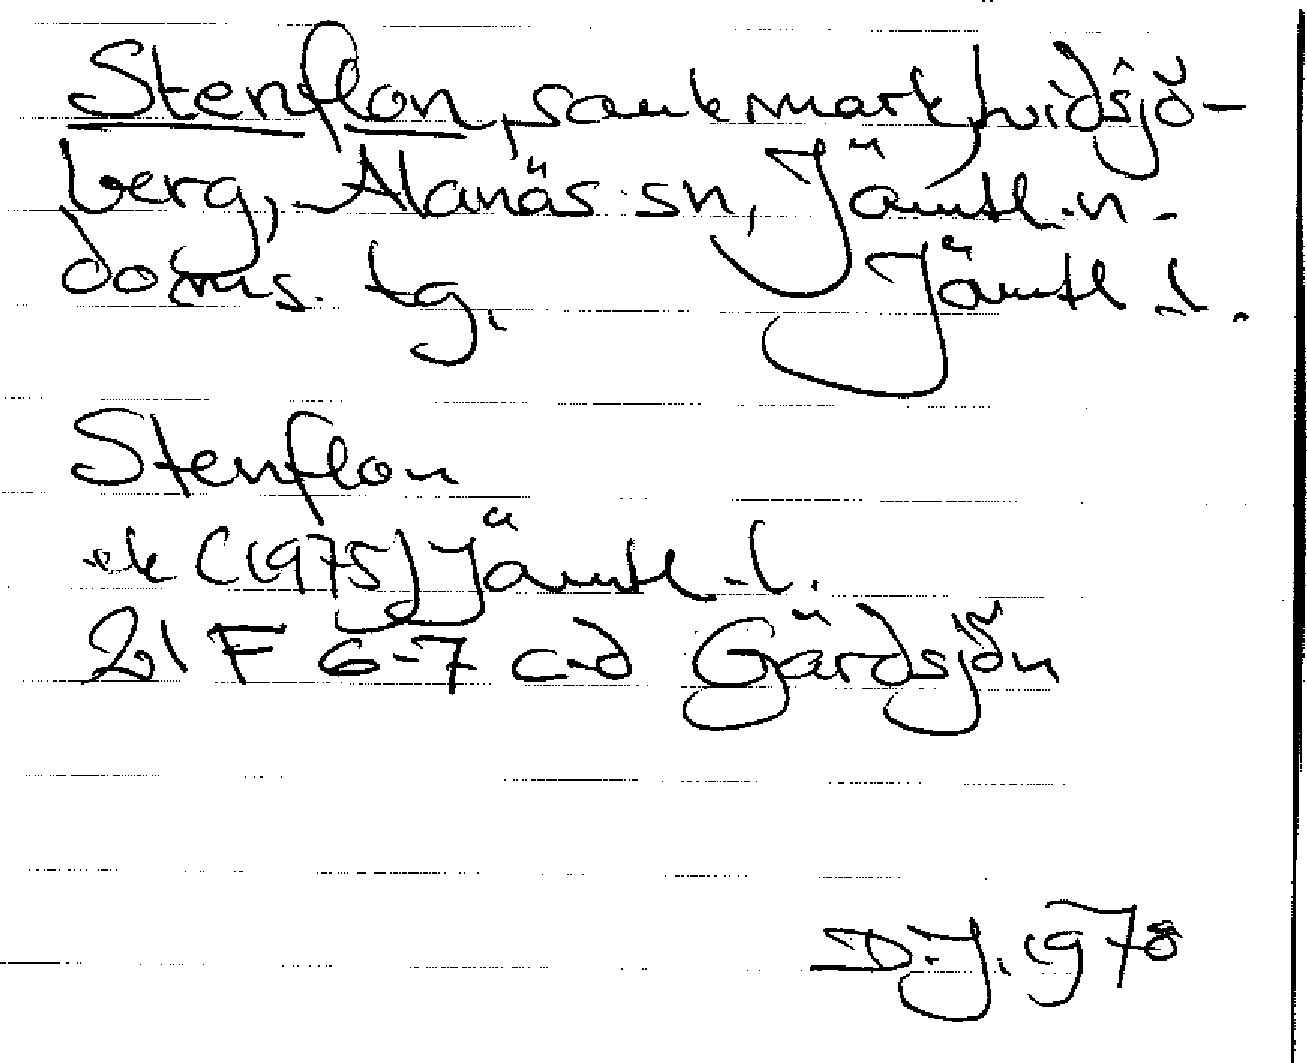 Stenflon, sankmark, vidsjö-
berg, Alanäs sn, Jämtl. n.
doms. tg. Jämtl. l.
Stenflon
ek C (1975) Jämtl. l.
21 F 6-7 c-d Gärdsjön
D.J. 1978